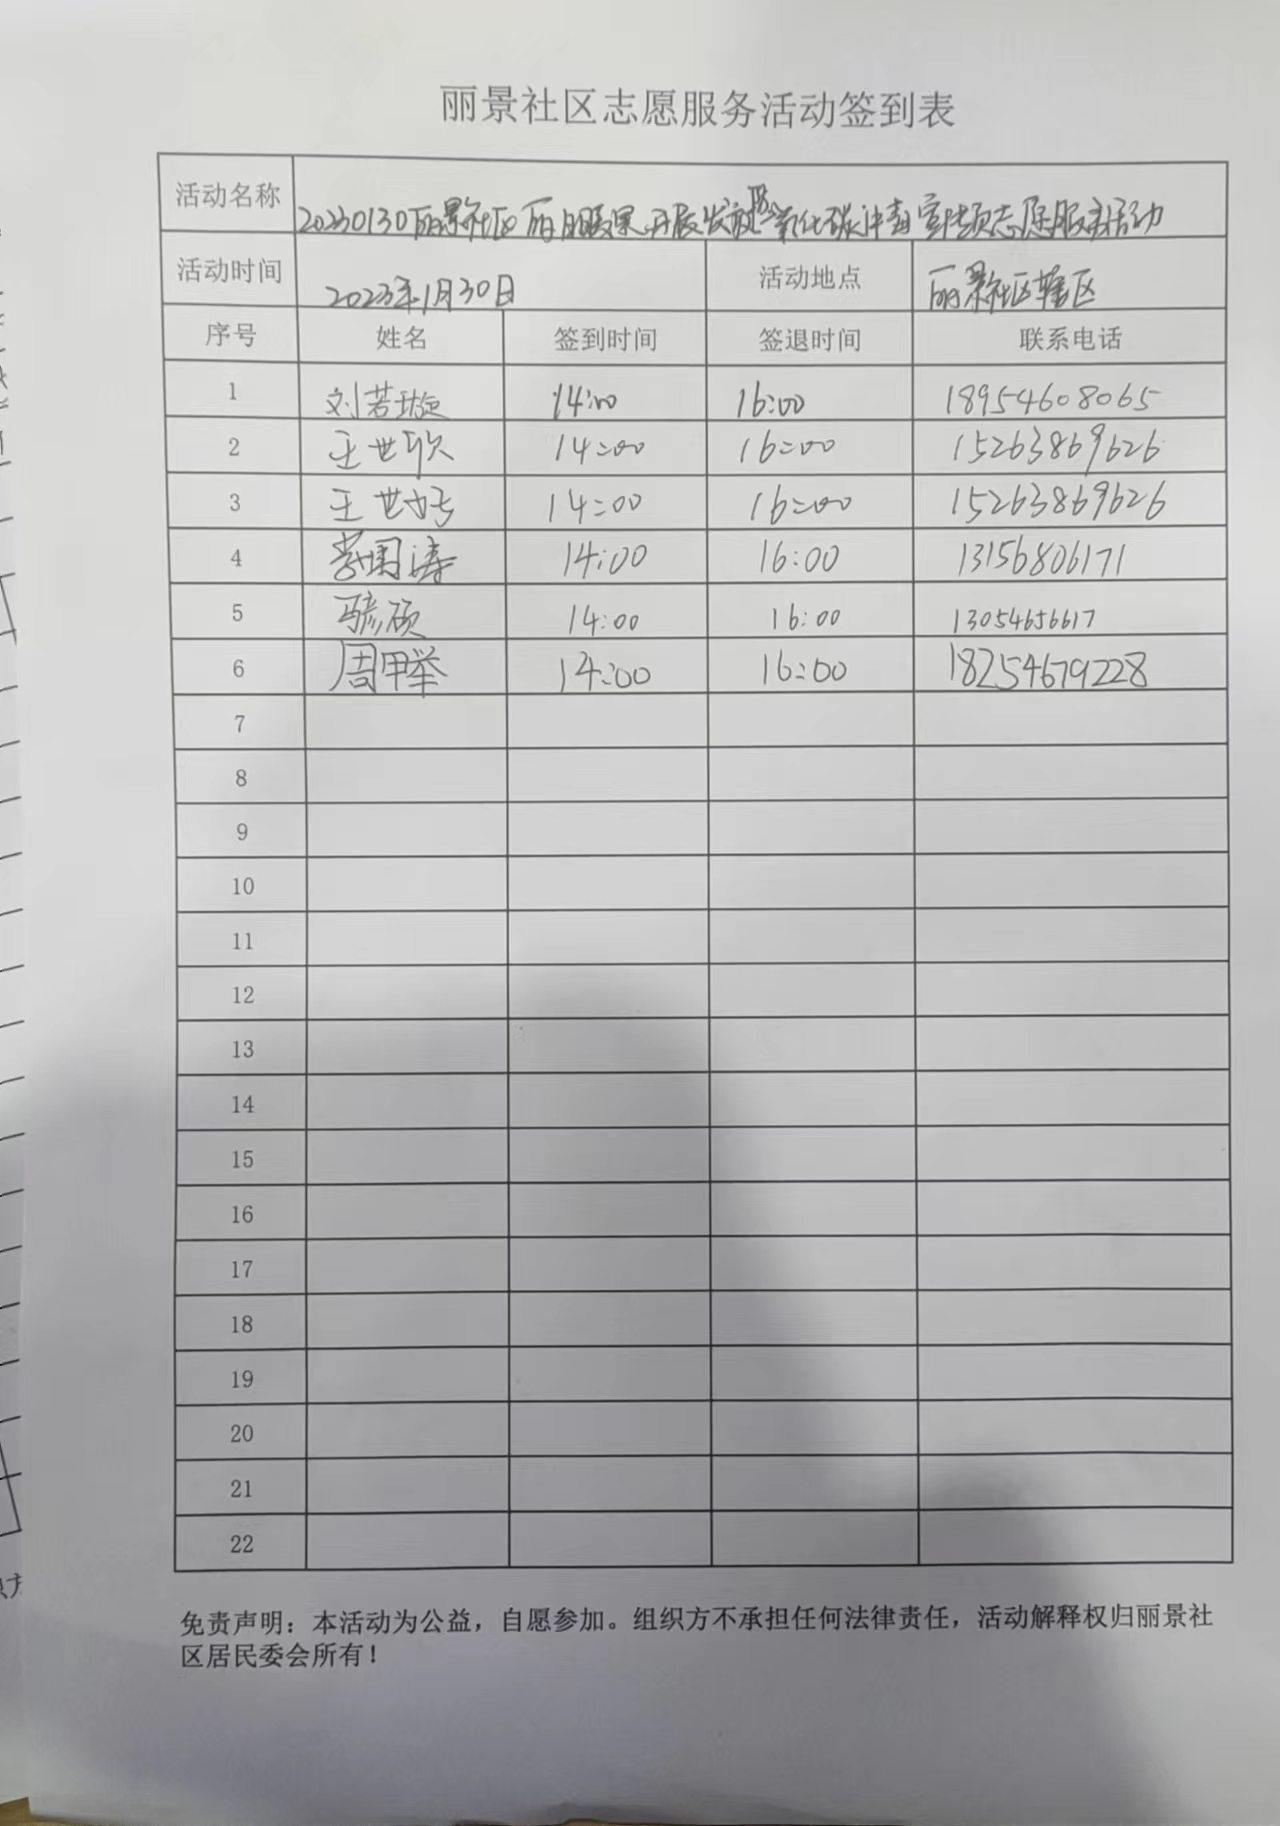 丽景社区志愿服务活动签到表
活动名称 20230130丽景社区 开展发放 氧化碳中毒宣传 志愿服务活动
活动时间 2023年1月30日 活动地点 丽景社区辖区
序号 姓名 签到时间 签退时间 联系电话
1 刘若璇 14:00 16:00 18954608065
2 王世欣 14:00 16:00 15263869626
3 王世 14:00 16:00 15263869626
4 14:00 16:00 13156806171
5 硕 14:00 16:00 13054656617
6 周甲举 14:00 16:00 18254679228
7
8
9
10
11
12
13
14
15
16
17
18
19
20
21
22
免责声明：本活动为公益，自愿参加。组织方不承担任何法律责任，活动解释权归丽景社
区居民委会所有！